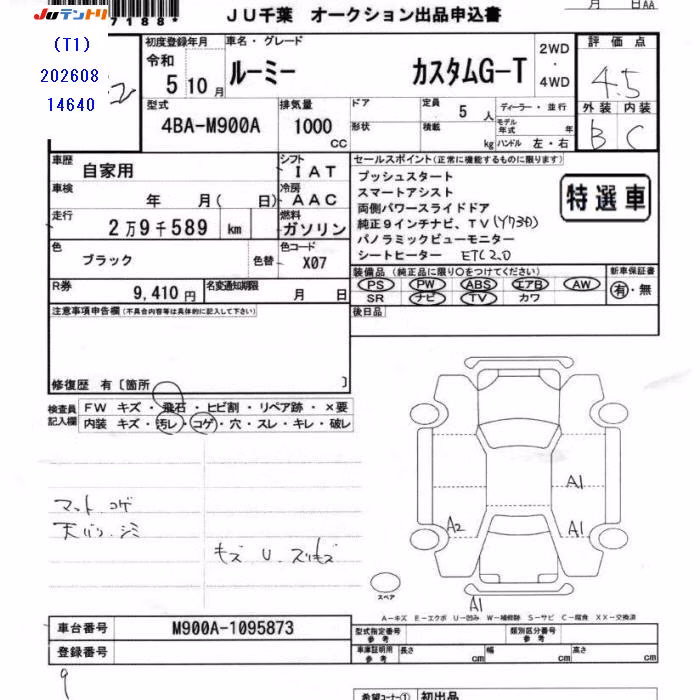 JUテントリ 7188*
JU千葉 オークション出品申込書
月 日AA
(T1)
202608
14640
初度登録年月
令和
5 10月
車名・グレード
ルーミー カスタムG-T
2WD
・
4WD
評価点
4.5
外装 内装
B C
型式
4BA-M900A
排気量
1000
CC
ドア
形状
定員 5 人
積載 kg
ディーラー・並行
モデル年式 年
ハンドル 左・右
車歴
自家用
シフト
IAT
車検
年 月( 日)
冷房
AAC
走行
2万9千589 km
燃料
ガソリン
色
ブラック
色替
色コード
X07
R券
9,410円
名変通知期限
月 日
セールスポイント(正常に機能するものに限ります)
プッシュスタート
スマートアシスト
両側パワースライドドア
純正9インチナビ、TV
パノラミックビューモニター
シートヒーター ETC2.0
特選車
装備品(純正品に限り○をつけてください)
PS PW ABS エアB AW
SR ナビ TV カワ
新車保証書
有・無
後日品
注意事項申告欄(不具合内容等は具体的に記入して下さい)
修復歴 有〔箇所 〕
検査員記入欄
FW キズ・飛石・ヒビ割・リペア跡・×要
内装 キズ・汚レ・コゲ・穴・スレ・キレ・破レ
マット コゲ
天バリ シミ
キズ U スリキズ
A1
A2
A1
A1
スペア
A―キズ E―エクボ U―凹み W―補修跡 S―サビ C―腐食 XX―交換済
車台番号 M900A-1095873
登録番号
型式指定番号 参考
類別区分番号 参考
車庫証明用 参考
長さ cm
幅 cm
高さ cm
希望コーナー① 初出品